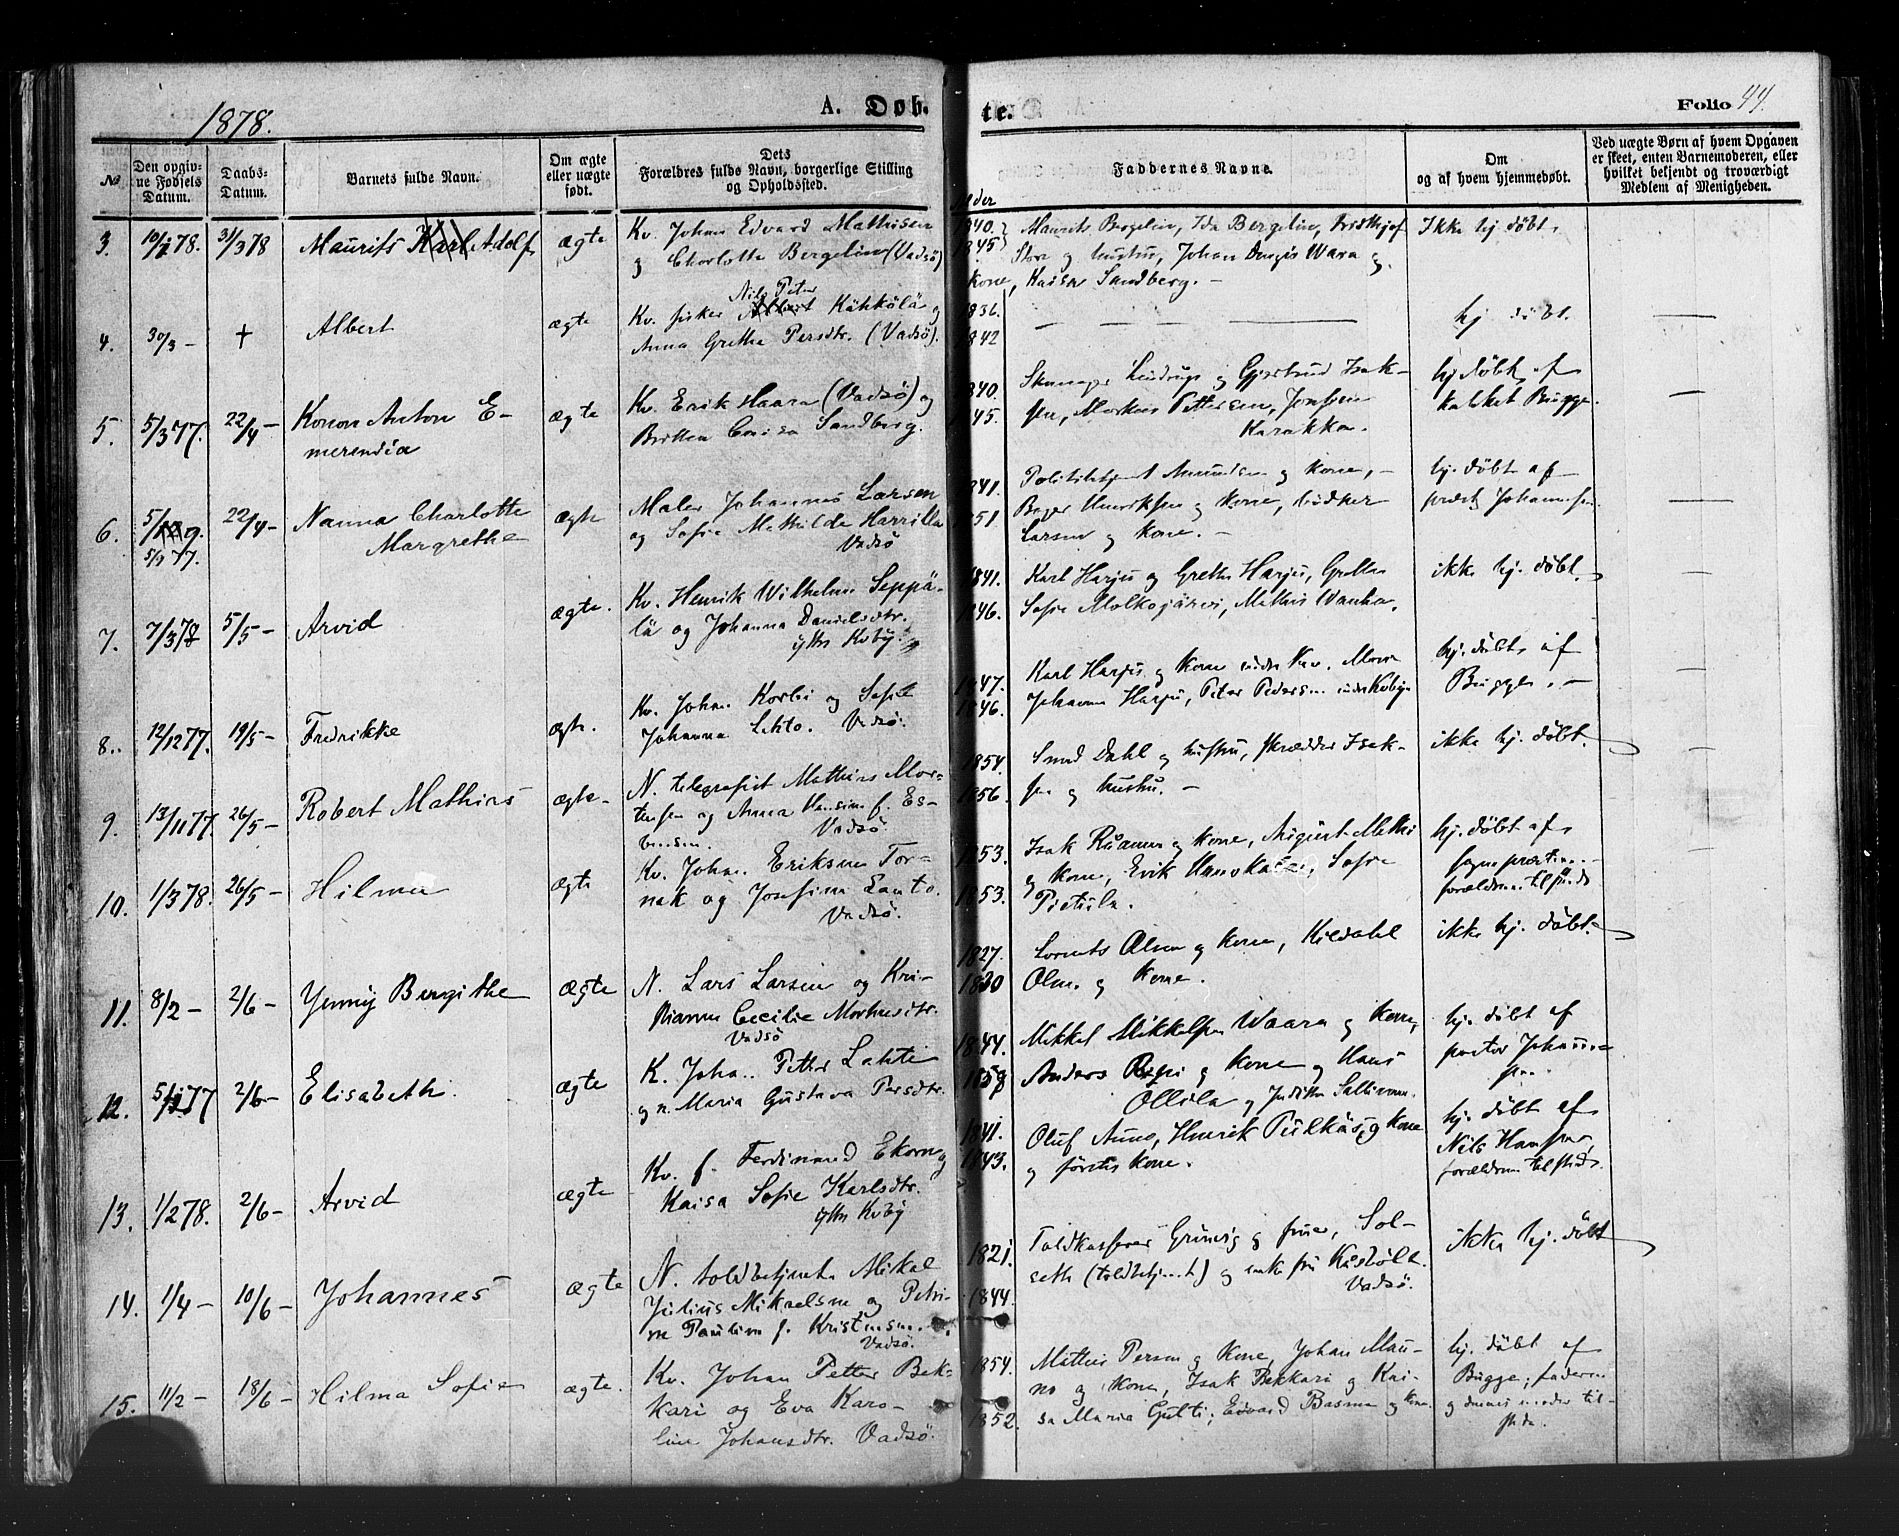 1878.
A. Døb-
te.
Folio 44.
No
Den opgiv-
ne Fødsels
Datum.
Daabs-
Datum.
Barnets fulde Navn.
Om ægte
eller uægte
født.
Dets
Forældres fulde Navn, borgerlige Stilling
og Opholdssted.
Alder
Faddernes Navne.
Om
og af hvem hjemmedøbt.
Ved uægte Børn af hvem Opgaven
er skeet, enten Barnemoderen, eller
hvilket bekjendt og troværdigt
Medlem af Menigheden.
3. 10/1 78. 31/3 78 Maurits Karl Adolf ægte
Kv. Johan Edvard Mathisen
og Charlotta Bergelin (Vadsö)
1840.
1845
Maurits Bergelin, Ida Bergelin,
og hustru, Johan Wara og
kone, Kaisa Sandberg. -
Ikke hj. døbt.
4. 30/3 - + Albert ægte
Nils Peter
Kv. fisker Albert Kähkölä og
Anna Gretha Persdtr. (Vadsö).
1836.
1842
hj. døbt.
5. 5/3 77. 22/4 - Konon Anton E-
merendia
ægte
Kv. Erik Haara (Vadsö) og
Britta Caisa Sandberg.
1840.
1845.
og Gjertrud Isak-
sen, Markus Pettersen, Josefine
Karakka.
hj. døbt af
Bugge.
6. 5/9. 22/4 - Nanna Charlotte
Margrethe
5/9 77.
ægte
Maler Johannes Larsen
og Sofie Mathilde Harrilla
Vadsö
1841.
1851
Amundsen og kone, -
Henriksen og kone,
Larsen og kone. -
hj. døbt af
præst Johannesen
7. 7/3 78 5/5 - Arvid ægte.
Kv. Henrik Wilhelm Seppä-
lä og Johanna Danielsdtr.
ytre Kvby.
1841.
1846.
Karl Harju og Gretha Harju, Gretha
Sofie Molkojärvi, Mathis Wanha.
ikke hj. døbt.
8. 12/12 77. 19/5 - Fredrikke ægte.
Kv. Johan Korbi og Sofie
Johanna Lehto. Vadsö.
1847.
1846.
Karl Harju og kone
Johanna Harju, Peter Pedersen
hj. døbt af
Bugge. -
9. 13/11 77. 26/5 - Robert Mathias ægte -
N. telegrafist Mathias Mor-
tensen og Anna Hansine f. Es-
bensen.
Vadsö.
1854.
1856.
Smed Dahl og hustru, skrædder Isak-
sen og hustru. -
ikke hj. døbt.
10. 1/3 78. 26/5 - Hilma ægte
Kv. Johan Eriksen Tor-
nak og Josefine Lanto.
Vadsö.
1853.
1853.
Isak og kone, August Mathi
og kone, Erik Sofie
Pietila.
hj. døbt af
forældrene tilstede
11. 8/2 - 2/6 - Jenny Bergithe ægte
N. Lars Larsen og Kri-
stianna Cecilie Morhusdtr.
Vadsö
1827.
1830
Lorents Olsen og kone, Kildahl
Olsen og kone.
ikke hj. døbt.
12. 77 2/6 - Elisabeth. ægte
K. Johan Petter Lahti
og n. Maria Gustava Persdtr.
1844.
1858
Mikkel Mikkelsen Waara og kone,
Anders og kone og Hans
Ollila og
hj. døbt af
pastor Johanne-
sen.
13. 1/2 78. 2/6 - Arvid ægte
Kv. f. Ferdinand Ekorn og
Kaisa Sofie Karlsdtr.
ytre Kvby
1841.
1843.
Oluf Auno, Henrik Pulkäs og kone
og førstes kone.
hj. døbt af
Nils Hansen,
forældrene tilstede.
14. 1/4 - 10/6 - Johannes ægte
N. toldbetjente Mikal
Julius Mikaelsen og Petri-
ne Pauline f. Kristensen.
Vadsö.
1821.
1844.
Toldkasserer Grünvig og frue, Sol-
seth (toldbetjent) og enke fru
Vadsö.
ikke hj. døbt
15. 11/2 - 18/6 - Hilma Sofie ægte.
Kv. Johan Petter Bek-
kari og Eva Karo-
line Johansdtr. Vadsö.
1854.
1852.
Mathis Persen og kone, Johan Mau-
no og kone, Isak Pekkari og Kai-
sa Maria Gulti; Edvard Basma og kone.
hj. døbt af
Bugge; faderen
og dennes moder til-
stede.